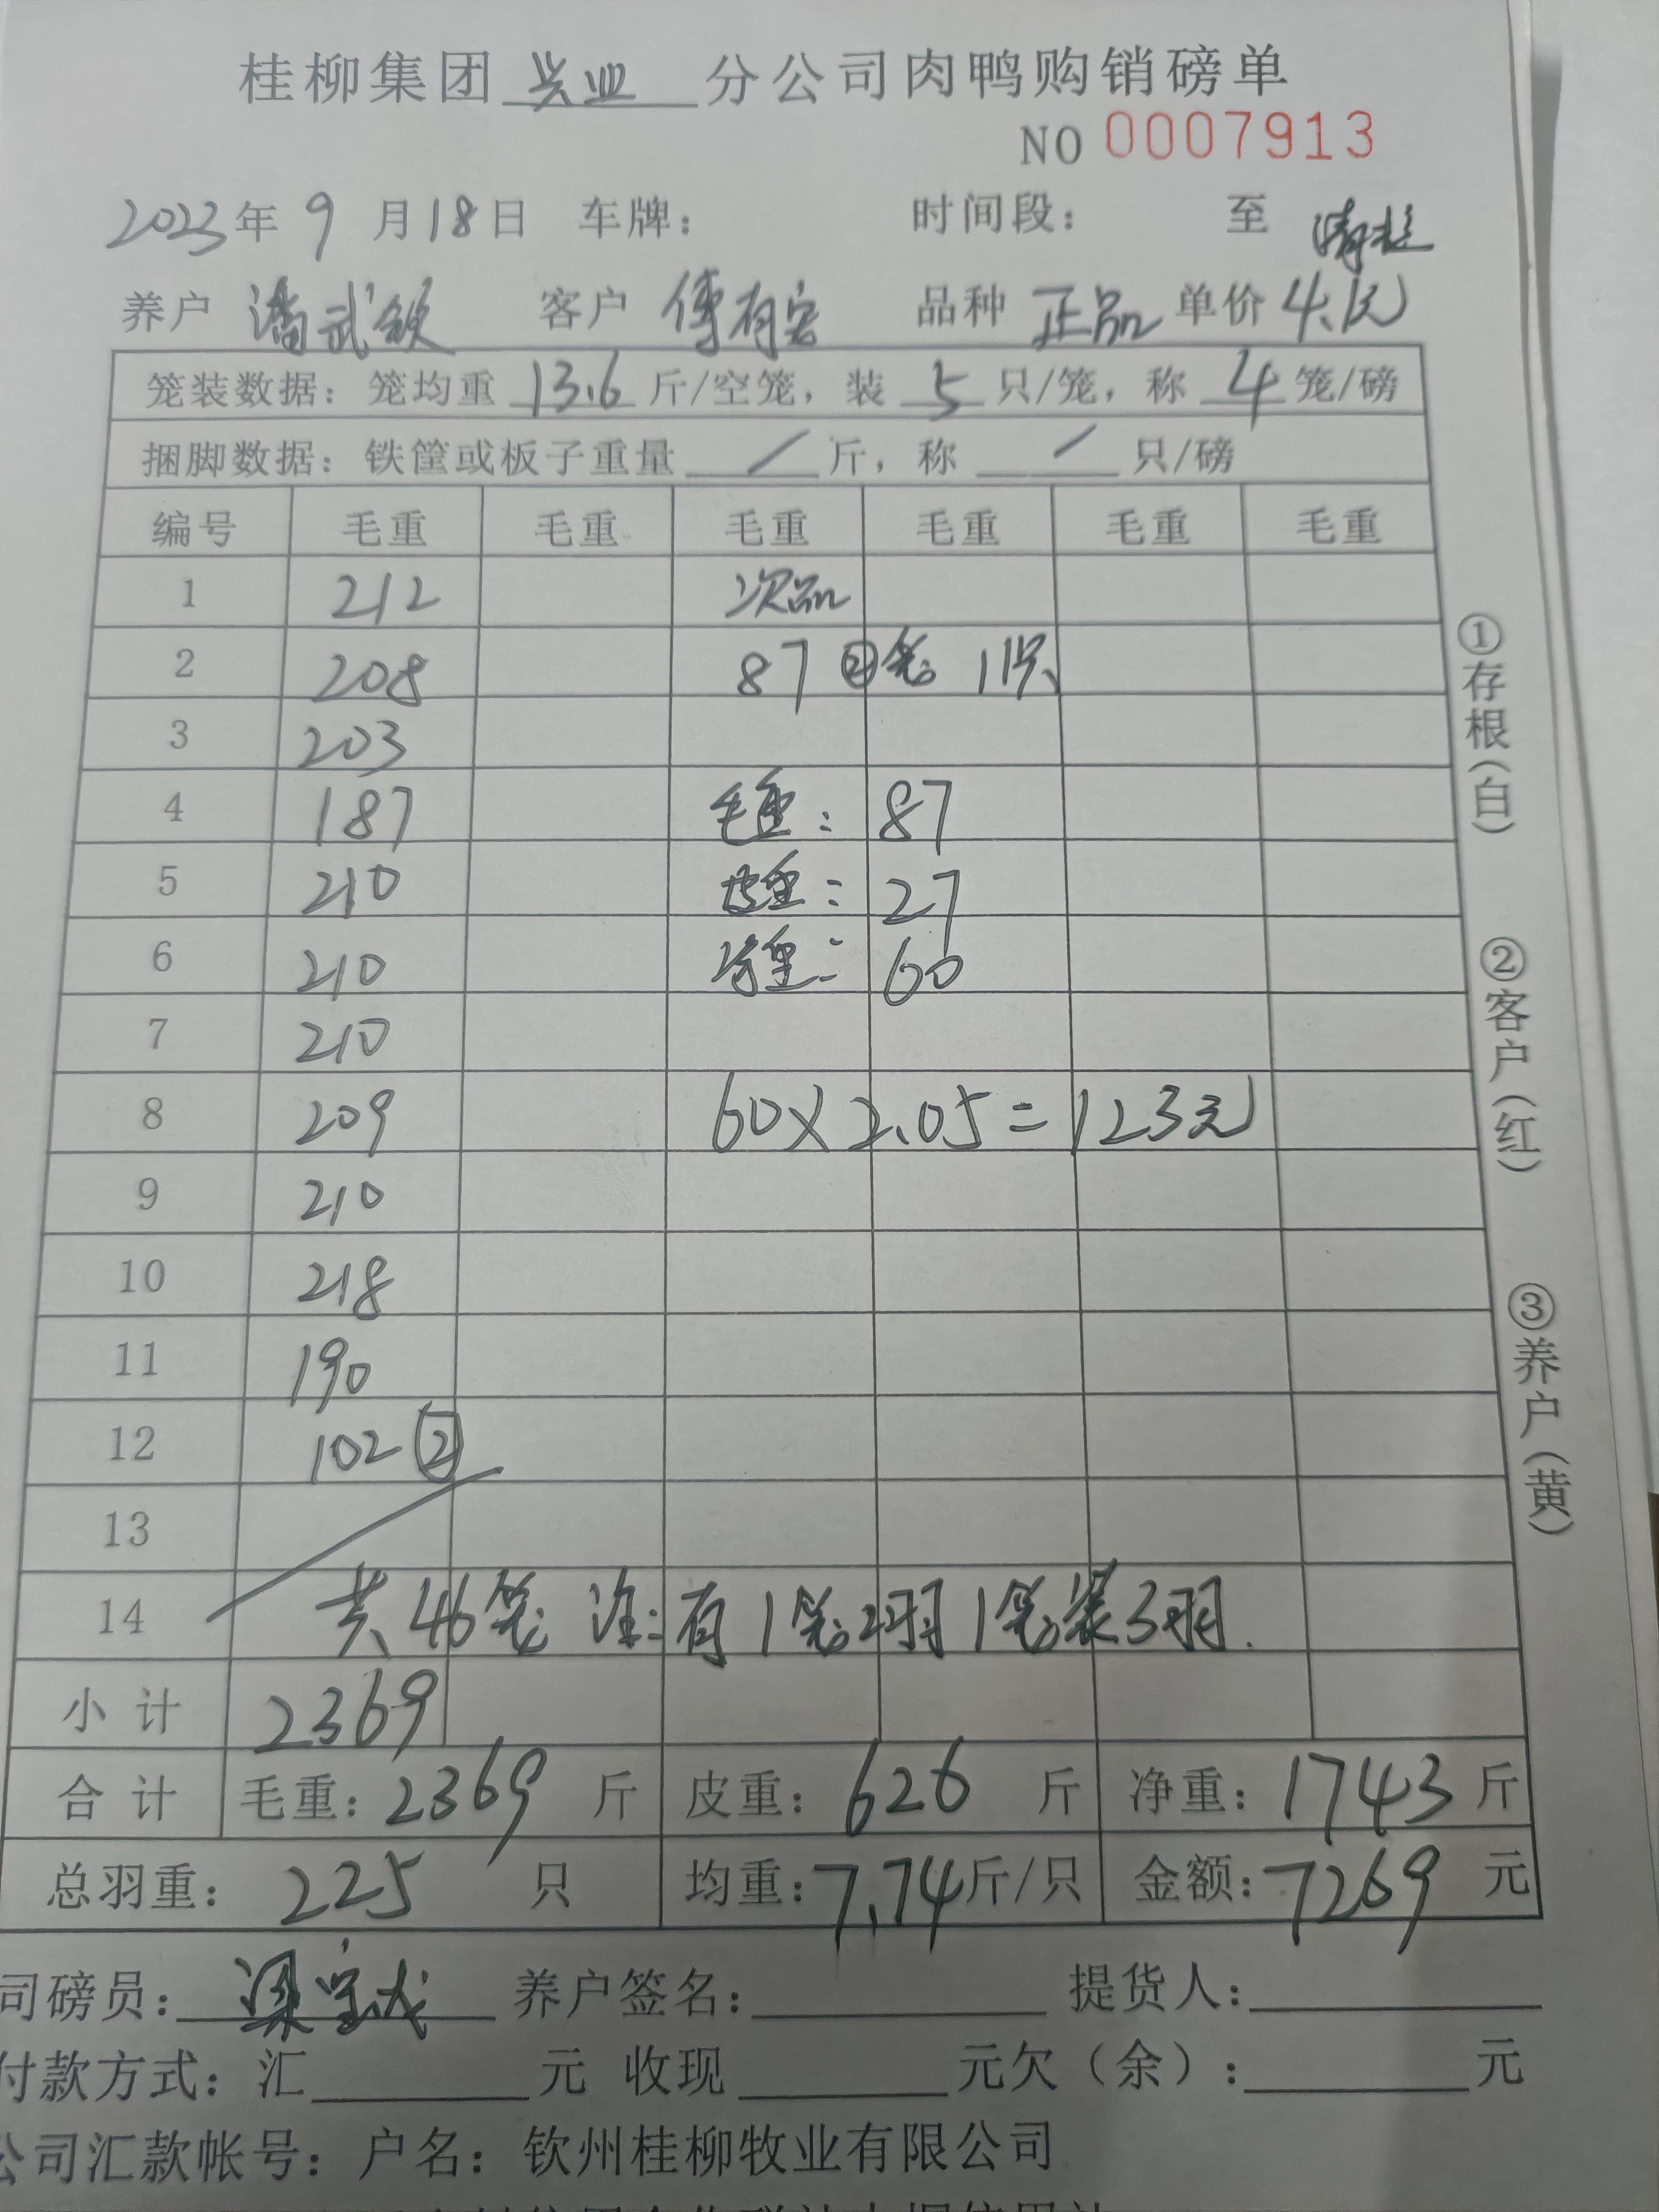 桂柳集团 兴业 分公司肉鸭购销磅单
NO 0007913
2023年 9 月18日 车牌： 时间段： 至 清栏
养户 潘武钦 客户 傅有容 品种 正品 单价 4.1元
笼装数据：笼均重 13.6 斤/空笼，装 5 只/笼，称 4 笼/磅
捆脚数据：铁筐或板子重量 / 斤，称 / 只/磅
编号 毛重 毛重 毛重 毛重 毛重 毛重
1 212 次品
2 208 87 ②笼 11只
3 203
4 187 毛重： 87
5 210 皮重： 27
6 210 净重： 60
7 210
8 209 60×2.05=123元
9 210
10 218
11 190
12 102②
13
14 共46笼 注：有1笼2羽1笼装3羽.
小计 2369
合计 毛重：2369 斤 皮重：626 斤 净重：1743 斤
总羽重：225 只 均重：7.74斤/只 金额：7269 元
司磅员： 养户签名： 提货人：
付款方式：汇 元 收现 元欠（余）： 元
公司汇款帐号：户名：钦州桂柳牧业有限公司
①存根（白）
②客户（红）
③养户（黄）